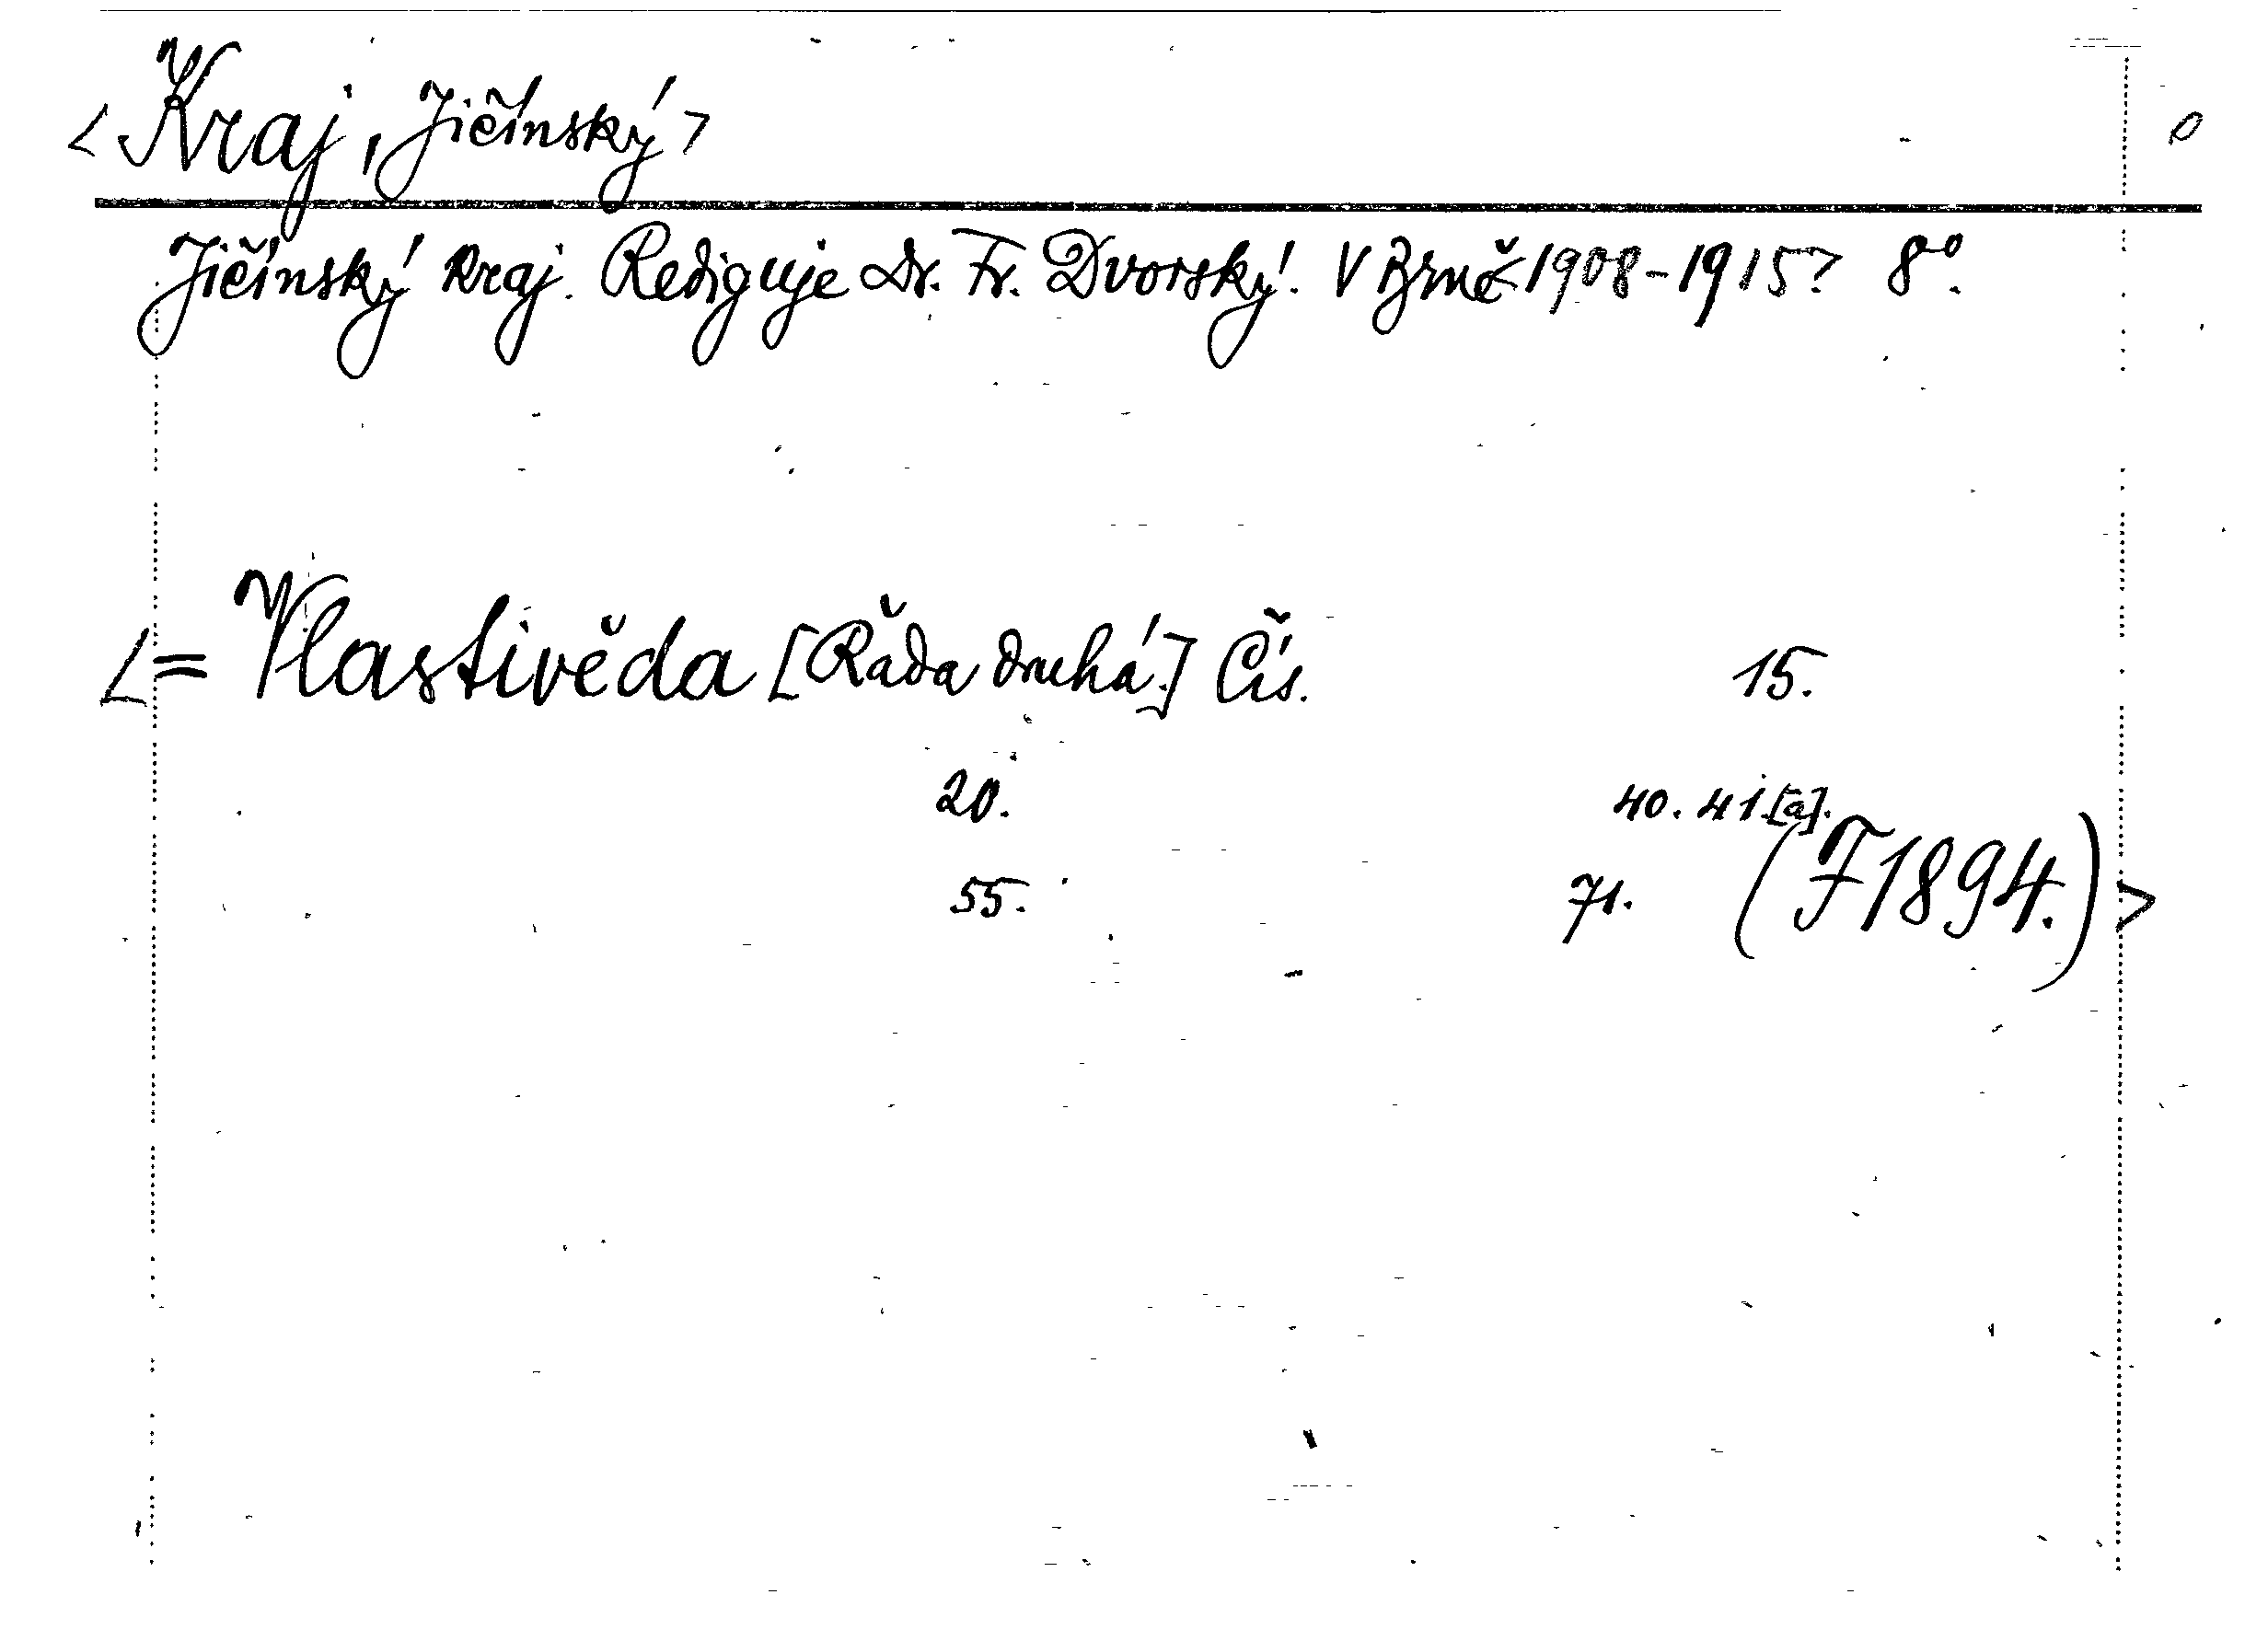 <Kraj, Jičínský>
Jičínský kraj. Rediguje Dr. Fr. Dvorský. V Brně <1908-1915> 8°.
<= Vlastivěda [Řada druhá.] Čís. 15.
20. 40. 41.[a].
55. 71. (F1894.)>